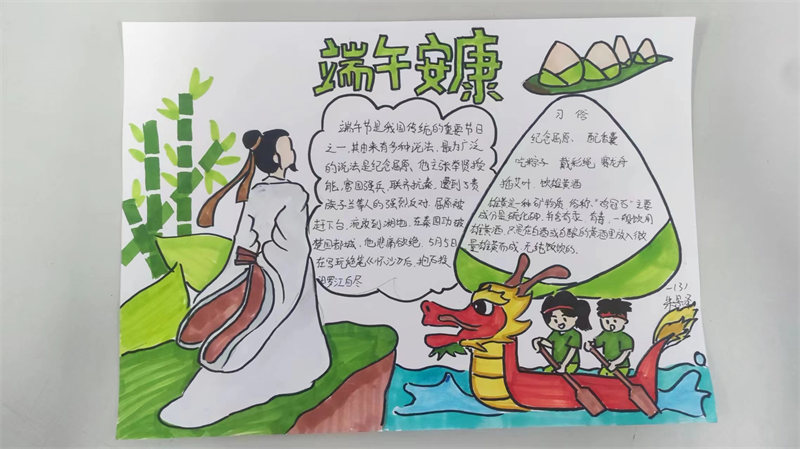 端午安康
端午节是我国传统的重要节日
之一，其由来有多种说法，最为广泛
的说法是纪念屈原、他主张举贤授
能，富国强兵，联齐抗秦，遭到了贵
族子兰等人的强烈反对，屈原被
赶下台，流放到湘地，在秦国功破
楚国都城，他悲痛欲绝，5月5日
在写玩绝笔《怀沙》后，抱石投
汨罗江自尽
习俗
纪念屈原、配香囊
吃粽子 戴彩绳 赛龙舟
插艾叶、饮雄黄酒
雄黄是一种矿物质，俗称"鸡冠石"主要
成分是硫化砷，并含有汞，有毒，一般饮用
雄黄酒，只是在白酒或自酿的黄酒里放入微
量雄黄而成，无纯饮饮的。
一（3）